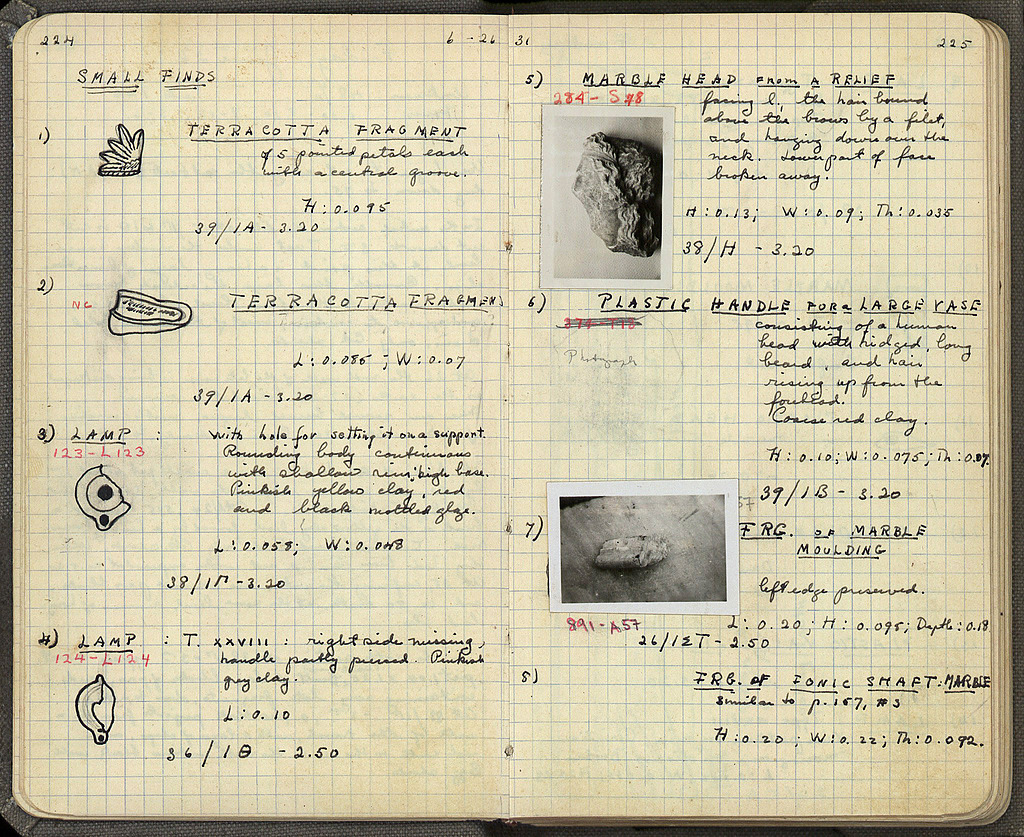 224
6 - 26 31
SMALL FINDS
1) TERRACOTTA FRAGMENT
of 5 pointed petals each
with a central groove.
H: 0.095
39/1A - 3.20
2) TERRACOTTA FRAGMEN
NC
L: 0.085; W: 0.07
39/1A - 3.20
3) LAMP : With hole for setting it on a support.
123-L123
Rounding body continuous
with shallow rim; high base.
Pinkish yellow clay, red
and black mottled glaze.
L: 0.058; W: 0.048
38/1Γ - 3.20
4) LAMP : T. XXVIII : right side missing,
124-L124
handle partly pierced. Pinkish
grey clay.
L: 0.10
36/1Θ - 2.50
225
5) MARBLE HEAD from A RELIEF
284- S 78
facing l., the hair bound
above the brows by a filet,
and hanging down over the
neck. Lower part of face
broken away.
H: 0.13; W: 0.09; Th: 0.035
38/H - 3.20
6) PLASTIC HANDLE FOR a LARGE VASE
consisting of a human
head with ridged, long
Photograph
beard, and hair
rising up from the
forehead.
Coarse red clay.
H: 0.10; W: 0.075; Th: 0.07.
39/1B - 3.20
7) FRG. OF MARBLE
MOULDING
left edge preserved.
L: 0.20; H: 0.095; Depth: 0.18
891-A57
26/1ΣΤ - 2.50
8) FRG. OF IONIC SHAFT: MARBLE
similar to p. 157, #3
H: 0.20; W: 0.22; Th: 0.092.